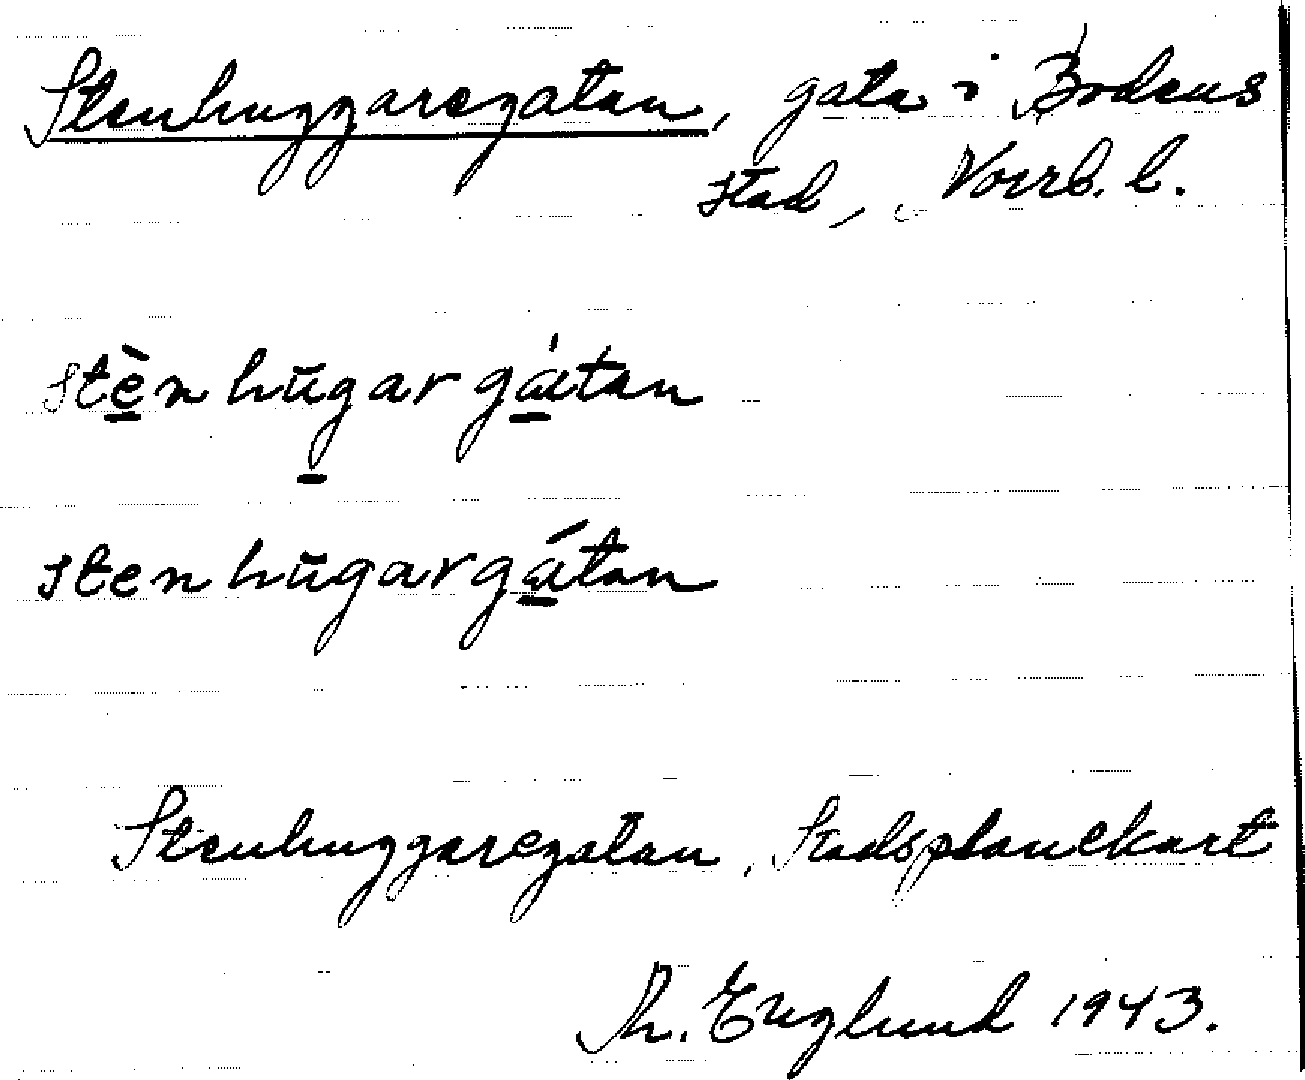 Stenhuggaregatan, gata i Bodens
stad, Norrb. l.
stè̱nhūg̱argá̱tan
stenhūgargá̱tan
Stenhuggaregatan, Stadsplanekart
Th. Englund 1943.